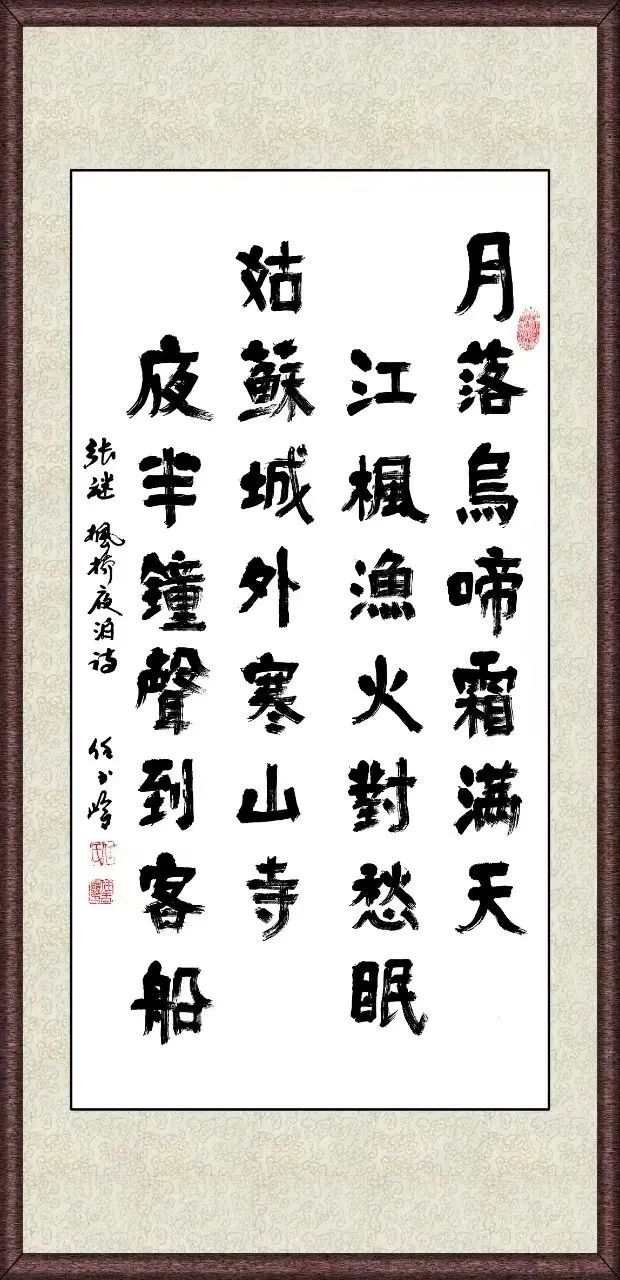 月落烏啼霜满天
江楓漁火對愁眠
姑蘇城外寒山寺
夜半鐘聲到客船
張継 楓橋夜泊詩